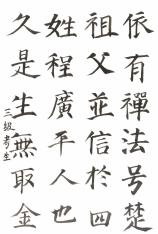 依有禪法号楚
祖父並信於四
姓程廣平人也
久是生無取金
三級考生